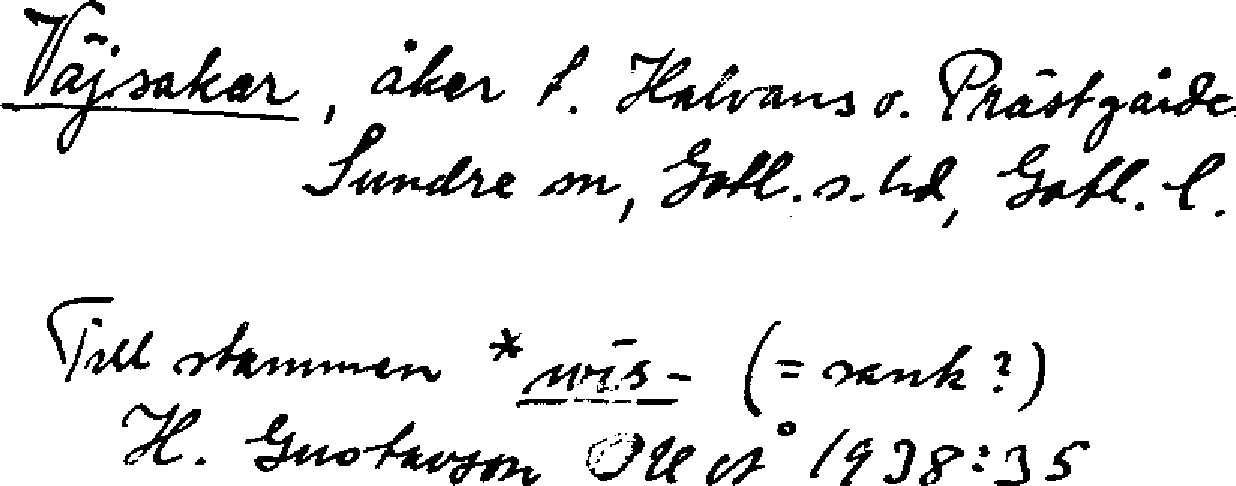 Väjsakar, åker t. Halvans o. Prästgårde
Sundre sn, Gotl. s. hd, Gotl. l.
Till stammen *wīs- (= sank?)
H. Gustavson 1938:35